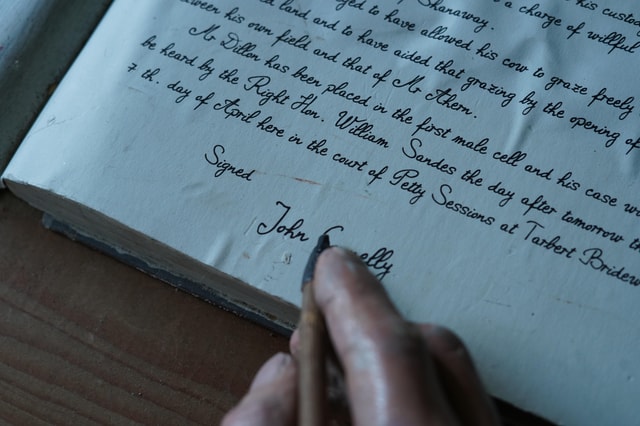 Shanaway. his custody
land, and to have allowed his cow to graze freely
a charge of willful
between his own field and that of Mr Ahern.
and to have aided that grazing by the opening of
Mr Dillon has been placed in the first male cell and his case wi
be heard by the Right Hon. William Sandes the day after tomorrow th
7 th. day of April here in the court of Petty Sessions at Tarbert Bridew
Signed
John